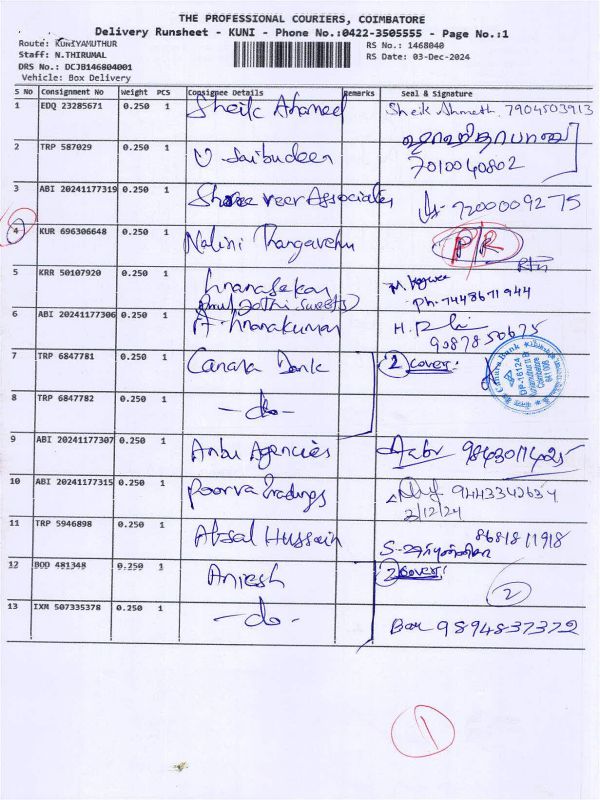 THE PROFESSIONAL COURIERS, COIMBATORE
Delivery Runsheet - KUNI - Phone No.:0422-3505555 - Page No.:1
Route: KUNIYAMUTHUR
RS No.: 1468040
Staff: N.THIRUMAL
RS Date: 03-Dec-2024
DRS No.: DCJB146804001
Vehicle: Box Delivery
S No Consignment No Weight PCS Consignee Details Remarks Seal & Signature
1 EDQ 23285671 0.250 1 Sheik Ahamed Sheik Ahmeth. 7904503913
2 TRP 587029 0.250 1 U Saibudeen
7010040802
3 ABI 20241177319 0.250 1 Shree veer Associates 7200009275
4 KUR 696306648 0.250 1 Nalini Thangavelu P/R
5 KRR 50107920 0.250 1 Gnanasekar
Ph: 7448671944
6 ABI 20241177306 0.250 1 A. Gnanakumar
9087850675
7 TRP 6847781 0.250 1 Canara Bank 2 cover:
Canara Bank
DP-16124
Coimbatore
641 008
8 TRP 6847782 0.250 1 -do-
9 ABI 20241177307 0.250 1 Anbu Agencies
10 ABI 20241177315 0.250 1 Poorva Tradings 9443342634
2/12/24
11 TRP 5946898 0.250 1 Absal Hussain 8681811918
12 BOD 481348 0.250 1 Aniesh 2 cover:
2
13 IXM 507335378 0.250 1 -do- 9894837372
1